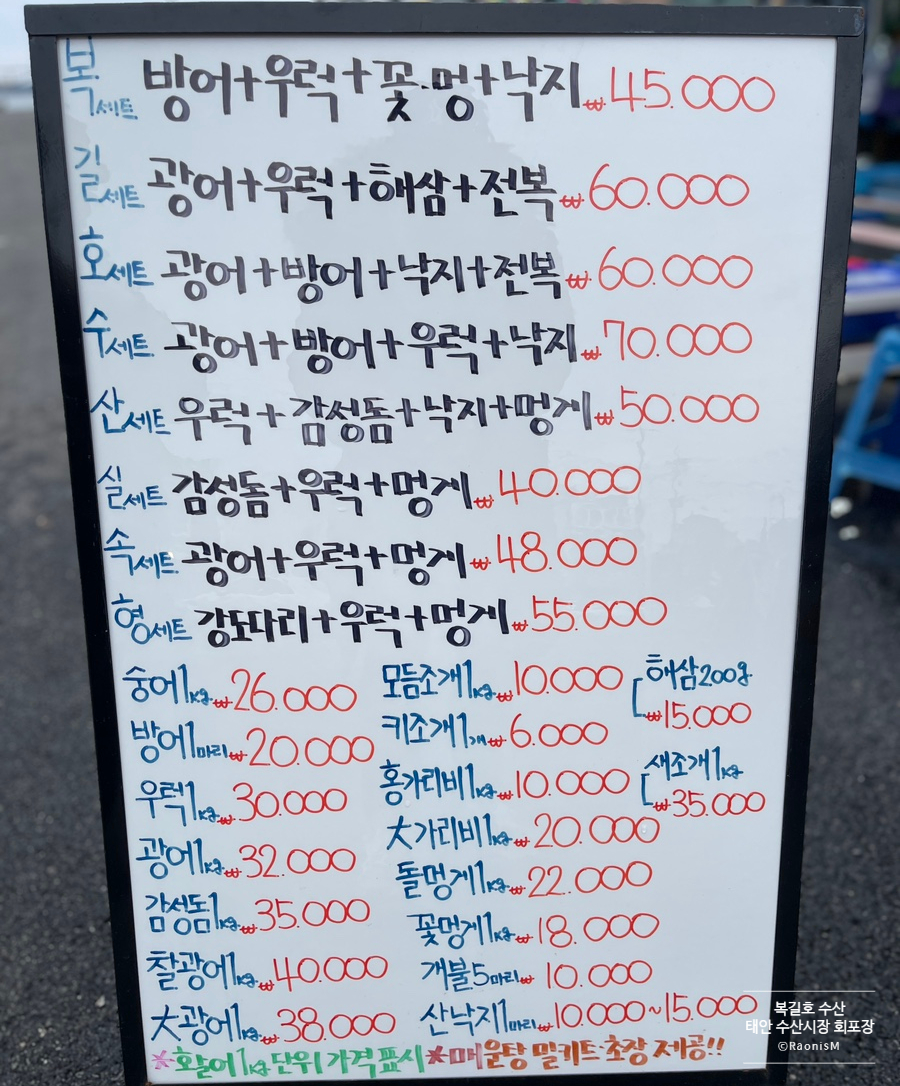 복세트 방어+우럭+꽃.멍+낙지 ₩45.000
길세트 광어+우럭+해삼+전복 ₩60.000
호세트 광어+방어+낙지+전복 ₩60.000
수세트 광어+방어+우럭+낙지 ₩70.000
산세트 우럭+감성돔+낙지+멍게 ₩50.000
실세트 감성돔+우럭+멍게 ₩40.000
속세트 광어+우럭+멍게 ₩48.000
형세트 강도다리+우럭+멍게 ₩55.000
숭어1kg ₩26.000
방어1마리 ₩20.000
우럭1kg ₩30.000
광어1kg ₩32.000
감성돔1kg ₩35.000
찰광어1kg ₩40.000
大광어1kg ₩38.000
모듬조개1kg ₩10.000
키조개1개 ₩6.000
홍가리비1kg ₩10.000
大가리비1kg ₩20.000
돌멍게1kg ₩22.000
꽃멍게1kg ₩18.000
개불5마리 ₩10.000
산낙지1마리 ₩10.000~15.000
해삼200g
₩15.000
새조개1kg
₩35.000
*활어1kg단위 가격표시 *매운탕 밀키트·초장 제공!!
복길호 수산
태안 수산시장 회포장
©RaonisM